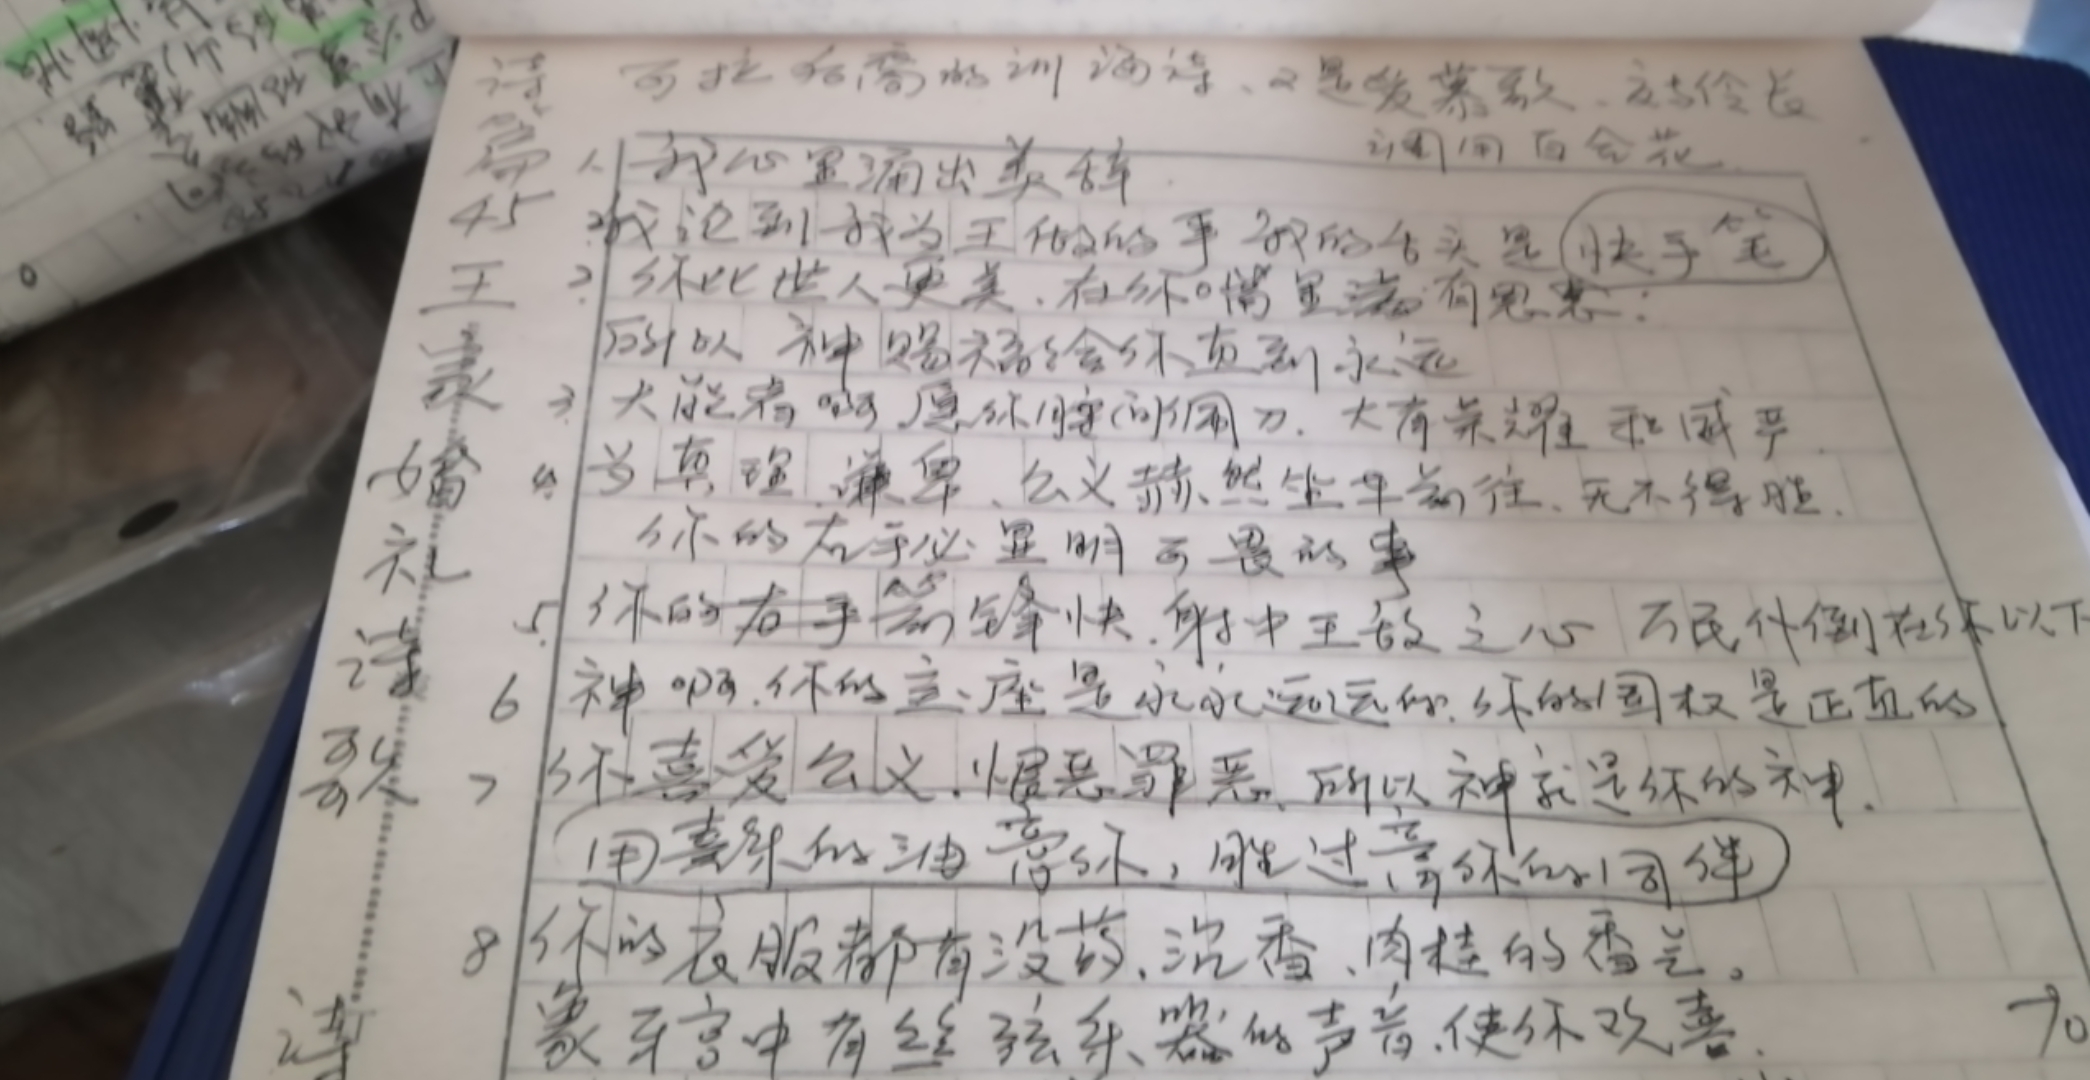 诗篇45 王家婚礼诗歌
可拉后裔的训诲诗、又是爱慕歌、交与伶长
调用百合花
1 我心里涌出美辞
我论到我为王做的事 我的舌头是快手笔
2 你比世人更美、在你嘴里满有恩惠:
所以神赐福给你直到永远
3 大能者啊愿你腰间佩刀、大有荣耀和威严
4 为真理、谦卑、公义赫然坐车前往、无不得胜.
你的右手必显明可畏的事
5 你的右手箭锋快、射中王敌之心 万民仆倒在你以下
6 神啊、你的宝座是永永远远的、你的国权是正直的
7 你喜爱公义、恨恶罪恶、所以神就是你的神.
用喜乐的油膏你, 胜过膏你的同伴
8 你的衣服都有没药、沉香、肉桂的香气。
象牙宫中有丝弦乐器的声音、使你欢喜.
诗
70